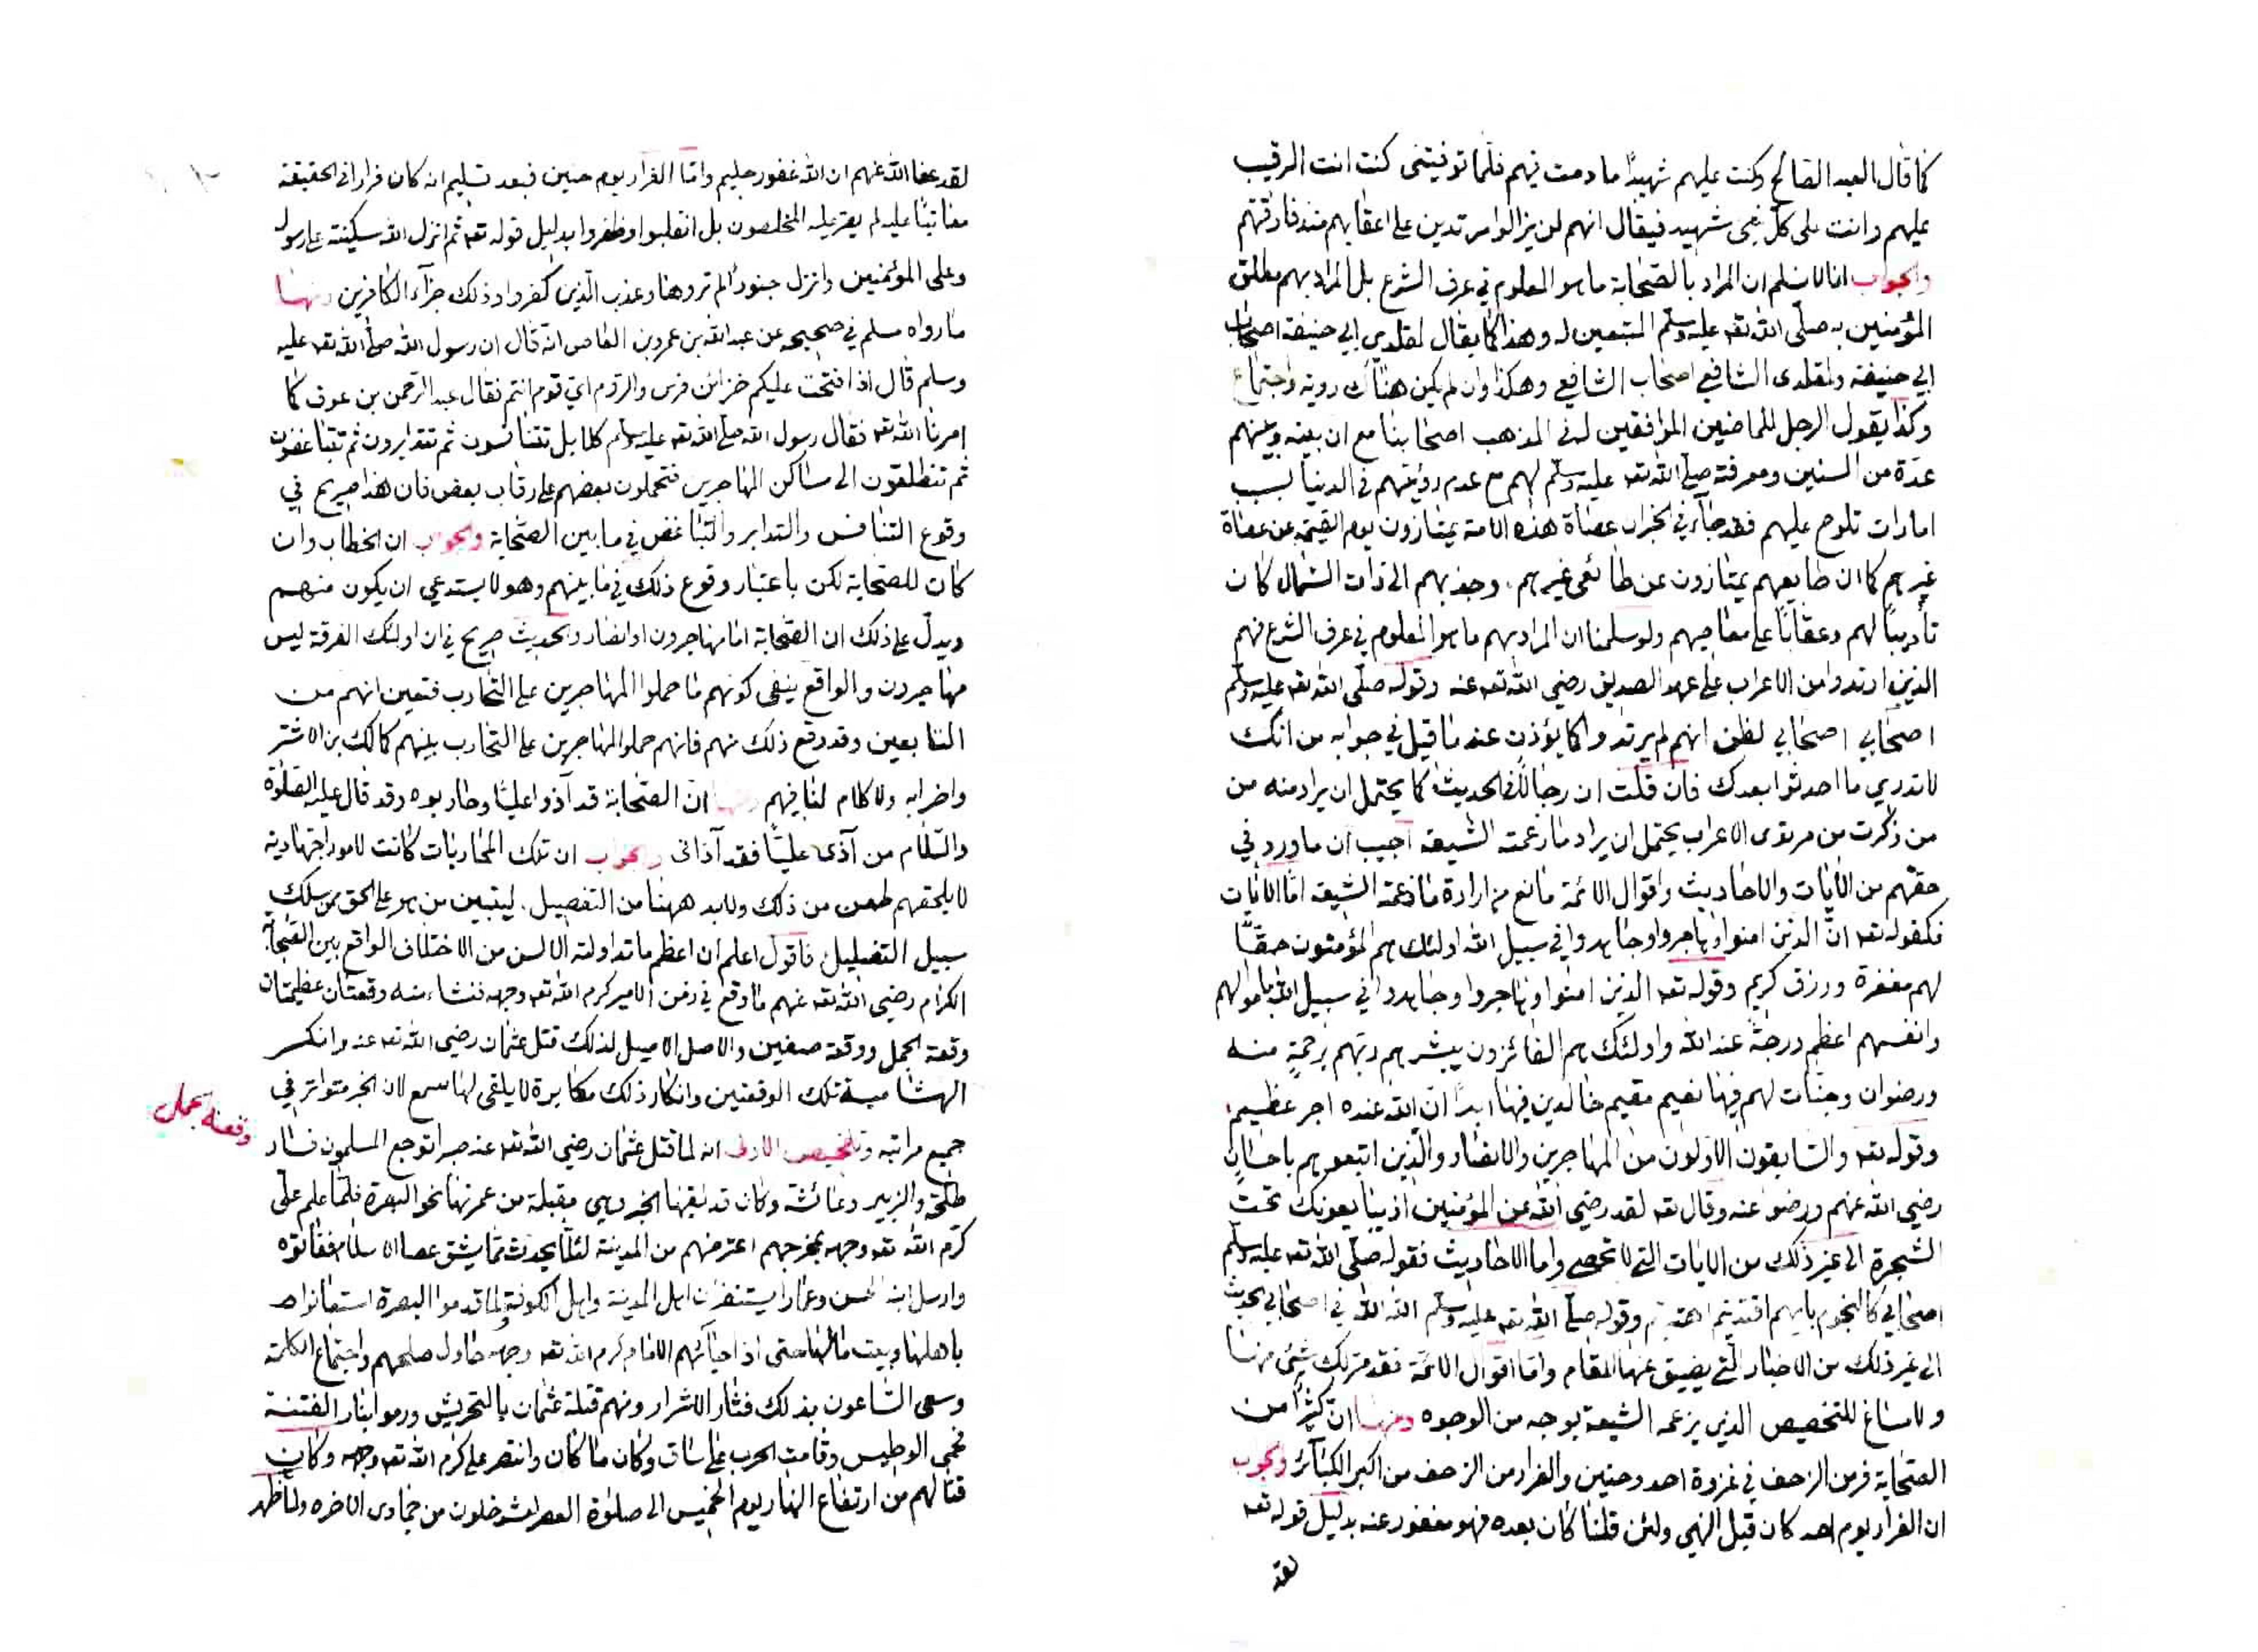 كما قال العبد الصالح وكنت عليهم شهيدًا ما دمت فيهم فلما توفيتني كنت انت الرقيب
عليهم وانت على كل شئ شهيد فيقال انهم لن يزالوا مرتدين على اعقابهم منذ فارقتهم
والجواب انا لا نسلم ان المراد بالصحابة ما هو المعلوم في عرف الشرع بل المراد بهم مطلق
المؤمنين به صلى الله تعه عليه وسلم المتبعين له وهذا كما يقال لمقلدي ابي حنيفة اصحاب
ابي حنيفة ولمقلدى الشافعي اصحاب الشافعي وهكذا وان لم يكن هناك روية واجتماع
وكذا يقول الرجل للماضين الموافقين له في المذهب اصحابنا مع ان بينه وبينهم
عدة من السنين ومعرفته صلى الله تعه عليه وسلم لهم مع عدم رؤيتهم في الدنيا بسبب
امارات تلوح عليهم فقد جاء في الخبر ان عصاة هذه الامة يمتازون يوم القيمة عن عصاة
غيرهم كما ان طايعهم يمتازون عن طائعى غيرهم وجذبهم الى ذات الشمال كان
تأديبًا لهم وعقابًا على معاصيهم ولو سلمنا ان المراد بهم ما هو المعلوم في عرف الشرع فهم
الذين ارتدوا من الاعراب على عهد الصديق رضي الله تعه عنه وقوله صلى الله تعه عليه وسلم
اصحابي اصحابي لظن انهم لم يرتدوا كما يؤذن عنه ما قيل في جوابه من انك
لا تدري ما احدثوا بعدك فان قلت ان رجالا في الحديث كما يحتمل ان يراد منه من
من ذكرت من مرتدى الاعراب يحتمل ان يراد ما زعمته الشيعة اجيب ان ما ورد في
حقهم من الايات والاحاديث واقوال الائمة مانع من ارادة ما زعمة الشيعة اما الايات
فكقوله تعه ان الذين امنوا وهاجروا وجاهدوا في سبيل الله اولئك هم المؤمنون حقًا
لهم مغفرة ورزق كريم وقوله تعه الذين امنوا وهاجروا وجاهدوا في سبيل الله باموالهم
وانفسهم اعظم درجةً عند الله واولئك هم الفائزون يبشرهم ربهم برحمةٍ منه
ورضوان وجنات لهم فيها نعيم مقيم خالدين فيها ابدًا ان الله عنده اجر عظيم
وقوله تعه والسابقون الاولون من المهاجرين والانصار والذين اتبعوهم باحسانٍ
رضي الله عنهم ورضوا عنه وقال تعه لقد رضي الله عن المؤمنين اذ يبايعونك تحت
الشجرة الى غير ذلك من الايات التي لا تحصى واما الاحاديث فقوله صلى الله تعه عليه وسلم
اصحابي كالنجوم بايهم اقتديتم اهتديتم وقوله صلى الله تعه عليه وسلم الله الله في اصحابي بحديث
الى غير ذلك من الاخبار التي يضيق عنها المقام واما اقوال الائمة فقد مر لك شئ منها
ولا مساغ للتخصيص الذي يزعمه الشيعة بوجه من الوجوه ومنها ان كثيرًا من
الصحابة فر من الزحف في غزوة احد وحنين والفرار من الزحف من اكبر الكبائر والجوب
ان الفرار يوم احد كان قبل النهي ولئن قلنا كان بعده فهو مغفور عنه بدليل قوله تعه
لقد
لقد عفا الله عنهم ان الله غفور حليم واما الفرار يوم حنين فبعد تسليم انه كان فرارا في الحقيقة
معاتبًا عليه لم يصر عليه المخلصون بل انقلبوا وظفروا بدليل قوله تعه ثم انزل الله سكينته على رسوله
وعلى المؤمنين وانزل جنودًا لم تروها وعذب الذين كفروا وذلك جزآء الكافرين ومنها
ما رواه مسلم في صحيحه عن عبد الله بن عمرو بن العاص انه قال ان رسول الله صلى الله تعه عليه
وسلم قال اذا فتحت عليكم خزائن فرس والروم اي قوم انتم فقال عبد الرحمن بن عوف كما
امرنا الله تعه فقال رسول الله صلى الله تعه عليه وسلم كلا بل تتنافسون ثم تتدابرون ثم تتباغضون
ثم تنطلقون الى مساكن المهاجرين فتحملون بعضهم على رقاب بعض فان هذا صريح في
وقوع التنافس والتدابر والتباغض في ما بين الصحابة والجواب ان الخطاب وان
كان للصحابة لكن باعتبار وقوع ذلك في ما بينهم وهو لا يستدعي ان يكون منهم
ويدل على ذلك ان الصحابة اما مهاجرون او انصار والحديث صريح في ان اولئك الفرقة ليس
مهاجرون والواقع ينفي كونهم ما حملوا المهاجرين على التحارب فتعين انهم من
التابعين وقد وقع ذلك منهم فانهم حملوا المهاجرين على التحارب بينهم كمالك بن الاشتر
واضرابه ولا كلام لنا فيهم ومنها ان الصحابة قد آذوا عليًا وحاربوه وقد قال عليه الصلوة
والسلام من آذى عليًا فقد آذانى والجواب ان تلك المحاربات كانت لامور اجتهادية
لا يلحقهم طعن من ذلك ولا بد ههنا من التفصيل ليتبين من هو على الحق ممن سلك
سبيل التضليل فاقول اعلم ان اعظم ما تداولته الالسن من الاختلاف الواقع بين الصحابة
الكرام رضي الله تعه عنهم ما وقع في زمن الامير كرم الله تعه وجهه فنشاء منه وقعتان عظيمتان
وقعة الجمل ووقعة صفين والاصل الاصيل لذلك قتل عثمان رضي الله تعه عنه وانكر
الهشامية تلك الوقعتين وانكار ذلك مكابرة لا يلقى لها سمع لان الخبر متواتر في
وقعة جمل
جميع مراتبه وتلخيص الاولى انه لما قتل عثمان رضي الله تعه عنه صبرا توجع المسلمون فسار
طلحة والزبير وعائشة وكان قد لقيها الخبر وهي مقبلة من عمرتها نحو البصرة فلما علم علي
كرم الله تعه وجهه بمخرجهم اعترضهم من المدينة لئلا يحدث ما يشق عصا الاسلام ففاتوه
وارسل ابنه الحسن وعمارا يستنفران اهل المدينة واهل الكوفة ولما قدموا البصرة استعانوا
باهلها وبيت مالها حتى اذا جائهم الامام كرم الله تعه وجهه حاول صلحهم واجتماع الكلمة
وسعى الساعون بذلك فثار الاشرار ومنهم قتلة عثمان بالتحريش ورموا بنار الفتنة
فحمى الوطيس وقامت الحرب على ساق وكان ما كان وانتصر علي كرم الله تعه وجهه وكان
قتالهم من ارتفاع النهار يوم الخميس الى صلوة العصر لعشر خلون من جمادى الاخره ولما ظهر